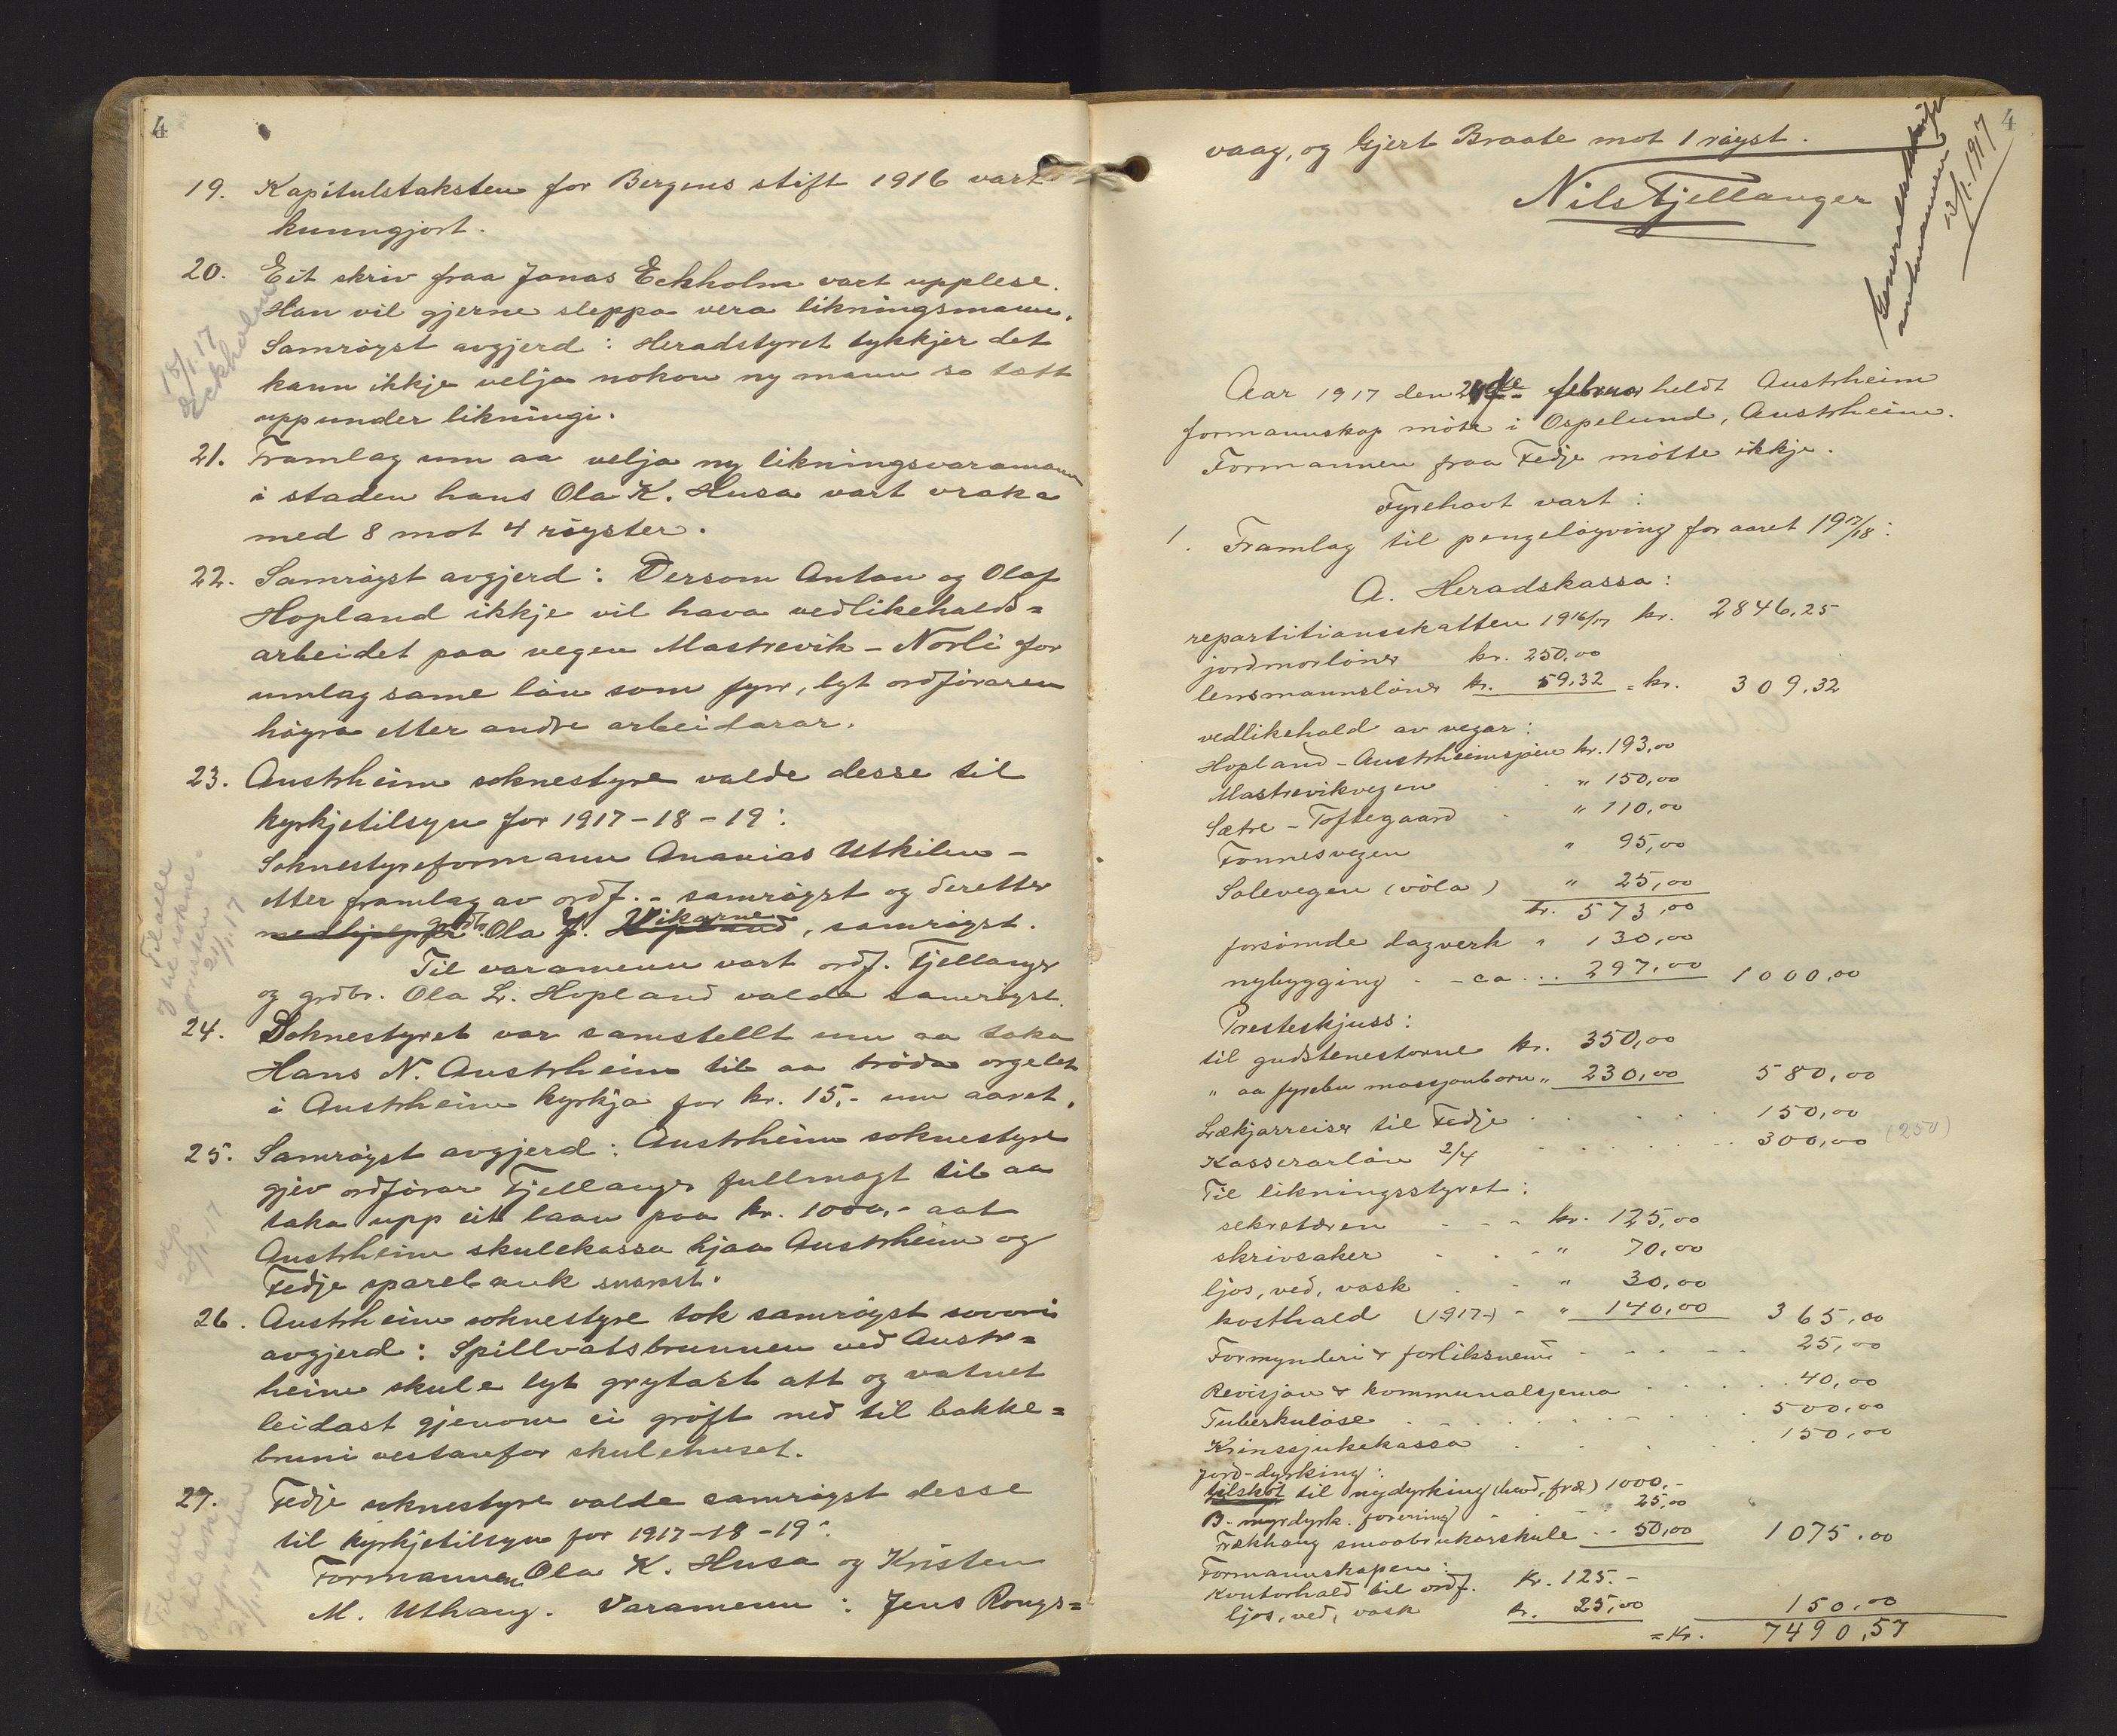 4
19. Kapitulstaksten for Bergens stift 1916 vart
kunngjort.
20. Eit skriv fraa Jonas Eckholm vart upplese.
Han vil gjerne sleppa vera likningsmann.
Samrøyst avgjerd: Heradstyret tykkjer det
kann ikkje velja nokon ny mann so tett
uppunder likningi.
18/1.17
Eckholm
21. Framlag um aa velja ny likningsvaramann
i staden hans Ola K. Husa vart vraka
med 8 mot 4 røyster.
22. Samrøyst avgjerd: Dersom Anton og Olaf
Hopland ikkje vil hava vedlikehalds=
arbeidet paa vegen Mastrevik - Norli for
umlag same løn som fyrr, lyt ordføraren
høyra etter andre arbeidarar.
23. Austrheim soknestyre valde desse til
kyrkjetilsyn for 1917-18-19:
Soknestyreformann Ananias Utkilen -
etter framlag av ordf. - samrøyst og deretter
medhjelpar grdbr. Ola J. Hopland Vikane, samrøyst.
Til varamenn vart ordf. Fjellanger
og grdbr. Ola L. Hopland valde samrøyst.
24. Soknestyret var samstellt um aa taka
Hans N. Austrheim til aa trøda orgelet
i Austrheim kyrkja for kr. 15,- um aaret.
25. Samrøyst avgjerd: Austrheim soknestyre
gjev ordførar Fjellanger fullmagt til aa
taka upp eit laan paa kr. 1000,- aat
Austrheim skulekassa hjaa Austrheim og
Fedje sparebank snarast.
26. Austrheim soknestyre tok samrøyst sovori
avgjerd: Spillvatsbrunnen ved Austr=
heim skule lyt grytast att og vatnet
leidast gjenom ei grøft ned til bakke=
bruni vestanfor skulehuset.
27. Fedje soknestyre valde samrøyst desse
til kyrkjetilsyn for 1917-18-19:
Formannen Ola K. Husa og Kristen
M. Uthaug. Varamenn: Jens Rongs=
4
vaag, og Gjert Braate mot 1 røyst.
Nils Fjellanger
Generalutskrift
amtmannen
13/1.1917
Aar 1917 den februar heldt Austrheim
formannskap møte i Ospelund, Austrheim.
Formannen fraa Fedje møtte ikkje.
Fyrehavt vart:
1. Framlag til pengeløyving for aaret 1917/18:
A. Heradskassa:
repartitionsskatten 1916/17 kr. 2846,25
jordmorløner kr. 250,00
lensmannsløner kr. 59,32 = kr. 309,32
vedlikehald av vegar:
Hopland-Austrheimsjøen kr. 193,00
Mastrevikvegen " 150,00
Sætre - Toftegaard " 110,00
Fonnesvegen " 95,00
Solevegen (vøla) " 25,00
kr. 573,00
forsømde dagverk " 130,00
nybygging - - ca ... 297,00 1000,00
Presteskjuss:
til gudstenestorne kr. 350,00
" aa fyrebu " 230,00 580,00
Lækjarreiser til Fedje 150,00
Kasserarløn 2/4 300,00 (250)
Til likningsstyret:
sekretæren - - - kr. 125,00
skrivsaker " 70,00
ljos, ved, vask - " 30,00
kosthald (1917-) - " 140,00 365,00
Formynderi & forliksnemd 25,00
Revisjon & kommunalsjema 40,00
Tuberkuløse 500,00
Krinssjukekassa 150,00
Jord-dyrking:
tilskot til nydyrking (hvd, frø) 1000,-
B. myrdyrk. forening 25,00
Frekhaug smaabrukarskule 50,00 1075,00
Formannskapen:
Kontorhald til ordf. Kr. 125.-
ljos, ved, vask kr. 25,00 150,00
= Kr. 7490,57